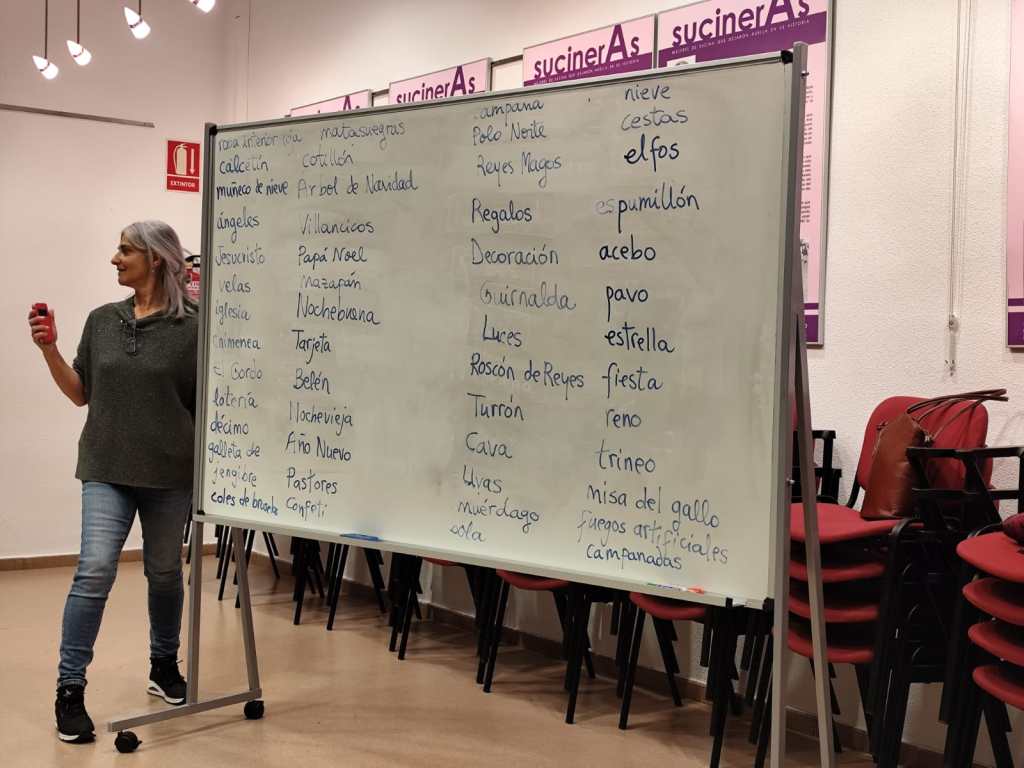 sucinerAs
sucinerAs
sucinerAs
sucinerAs
MUJERES DE SUCINA QUE DEJARON HUELLA EN SU HISTORIA
EXTINTOR
ropa interior roja
calcetín
muñeco de nieve
ángeles
Jesucristo
velas
iglesia
chimenea
El Gordo
lotería
décimo
galleta de
jengibre
coles de bruselas
matasuegras
cotillón
Árbol de Navidad
Villancicos
Papá Noel
Mazapán
Nochebuena
Tarjeta
Belén
Nochevieja
Año Nuevo
Pastores
Confeti
campana
Polo Norte
Reyes Magos
Regalos
Decoración
Guirnalda
Luces
Roscón de Reyes
Turrón
Cava
Uvas
muérdago
nieve
cestas
elfos
espumillón
acebo
pavo
estrella
fiesta
reno
trineo
misa del gallo
fuegos artificiales
campanadas